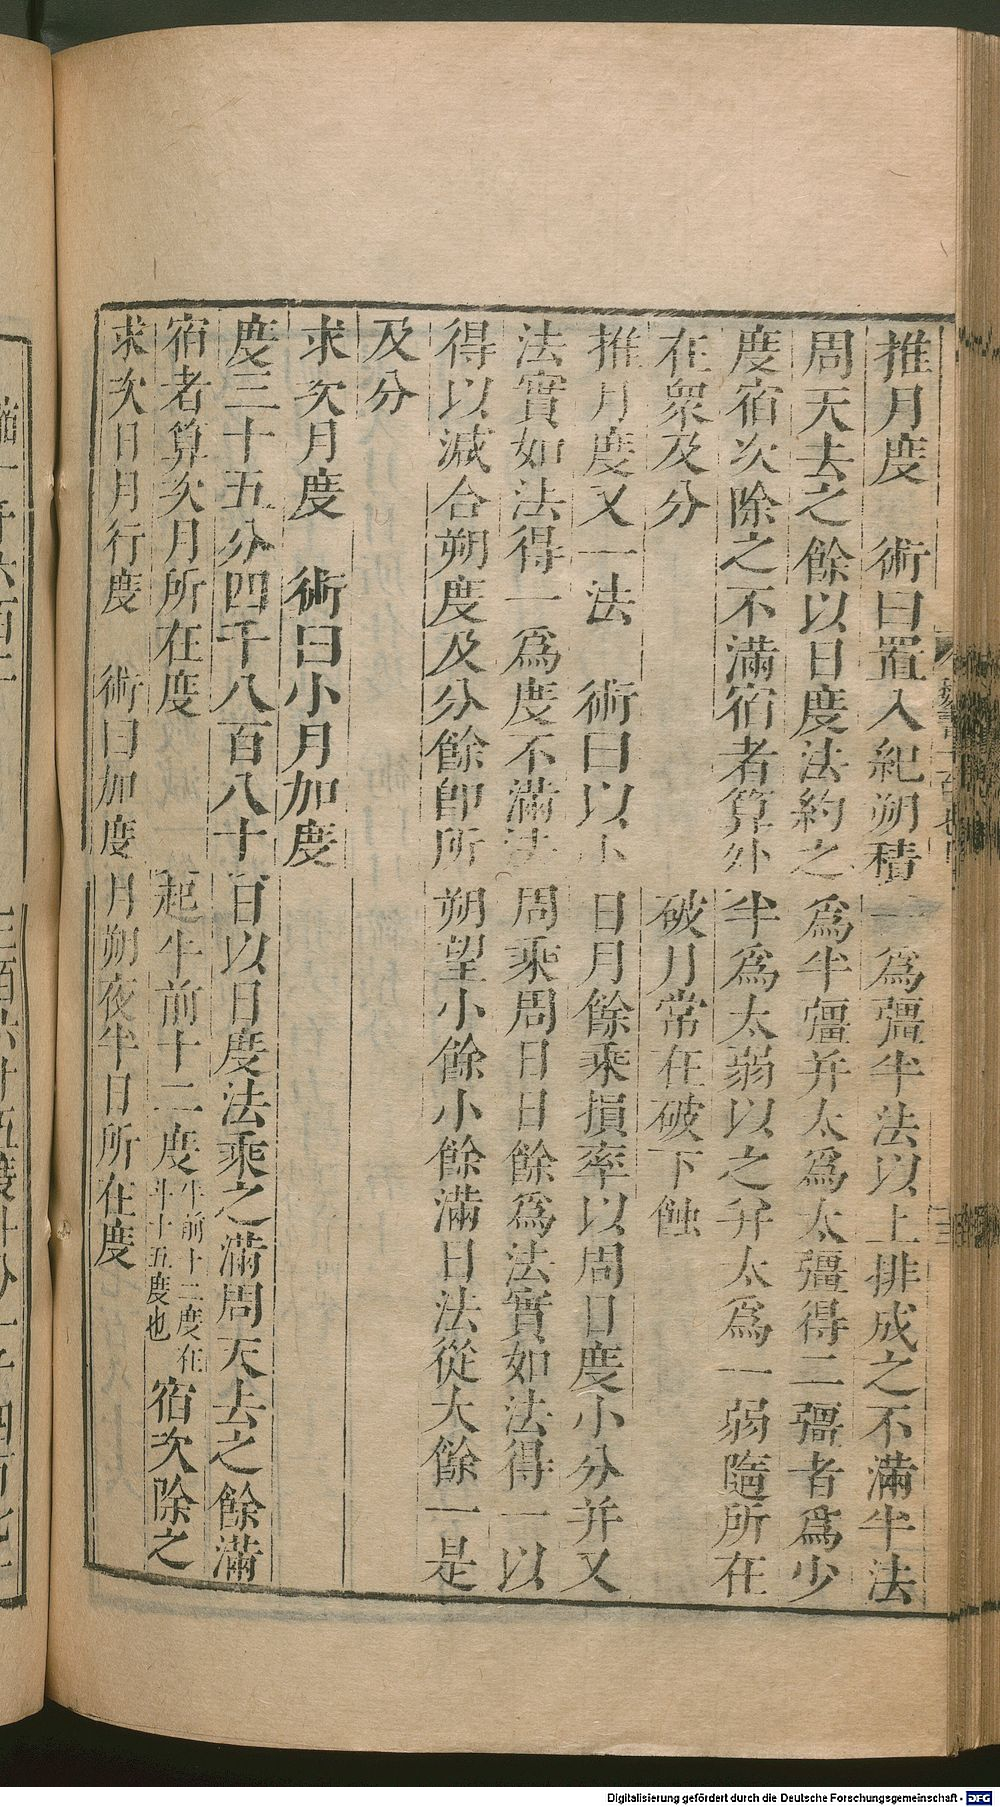 推月度　術曰置入紀朔積一爲彊半法以上排成之不滿半法
周天去之餘以日度法約之爲半彊并太爲太彊得二彊者爲少
度宿次除之不滿宿者算外半爲太弱以之并太爲一弱隨所在
在衆及分　破月常在破下蝕
推月度又一法　術曰以小日月餘乘損率以周日度小分并又
法實如法得一爲度不滿法周乘周日日餘爲法實如法得一以
得以減合朔度及分餘卽所朔望小餘小餘滿日法從大餘一是
及分
求次月度　術曰小月加度
度三十五分四千八百八十百以日度法乘之滿周天去之餘滿
宿者算次月所在度　起牛前十二度牛前十二度在斗十五度也宿次除之
求次日月行度　術曰加度月朔夜半日所在度
Digitalisierung gefördert durch die Deutsche Forschungsgemeinschaft - DFG